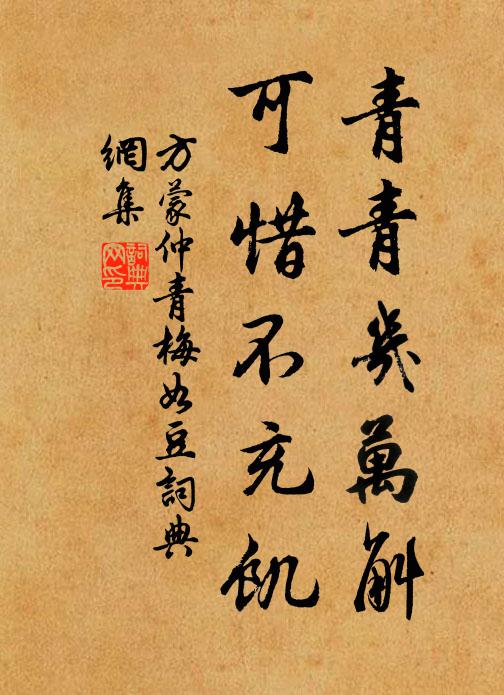 青青幾萬斛
可惜不充飢
方蒙仲青梅如豆詞典
網集
詞典
网印